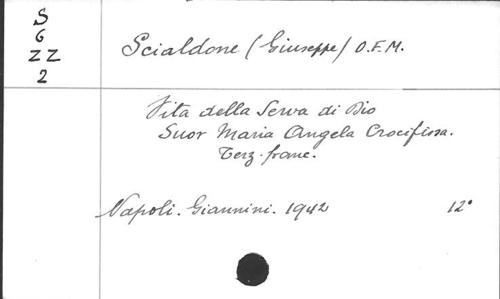 S
6
ZZ
2
Scialdone (Giuseppe) O.F.M.
Vita della Serva di Dio
Suor Maria Angela Crocifissa.
Terz. franc.
Napoli. Giannini. 1942 12°